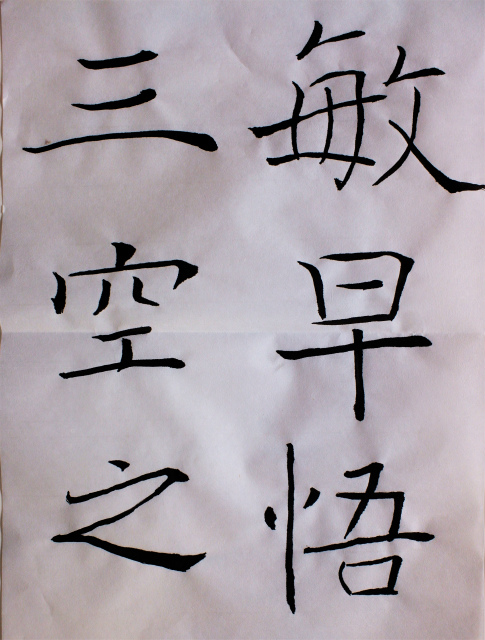 敏早悟
三空之